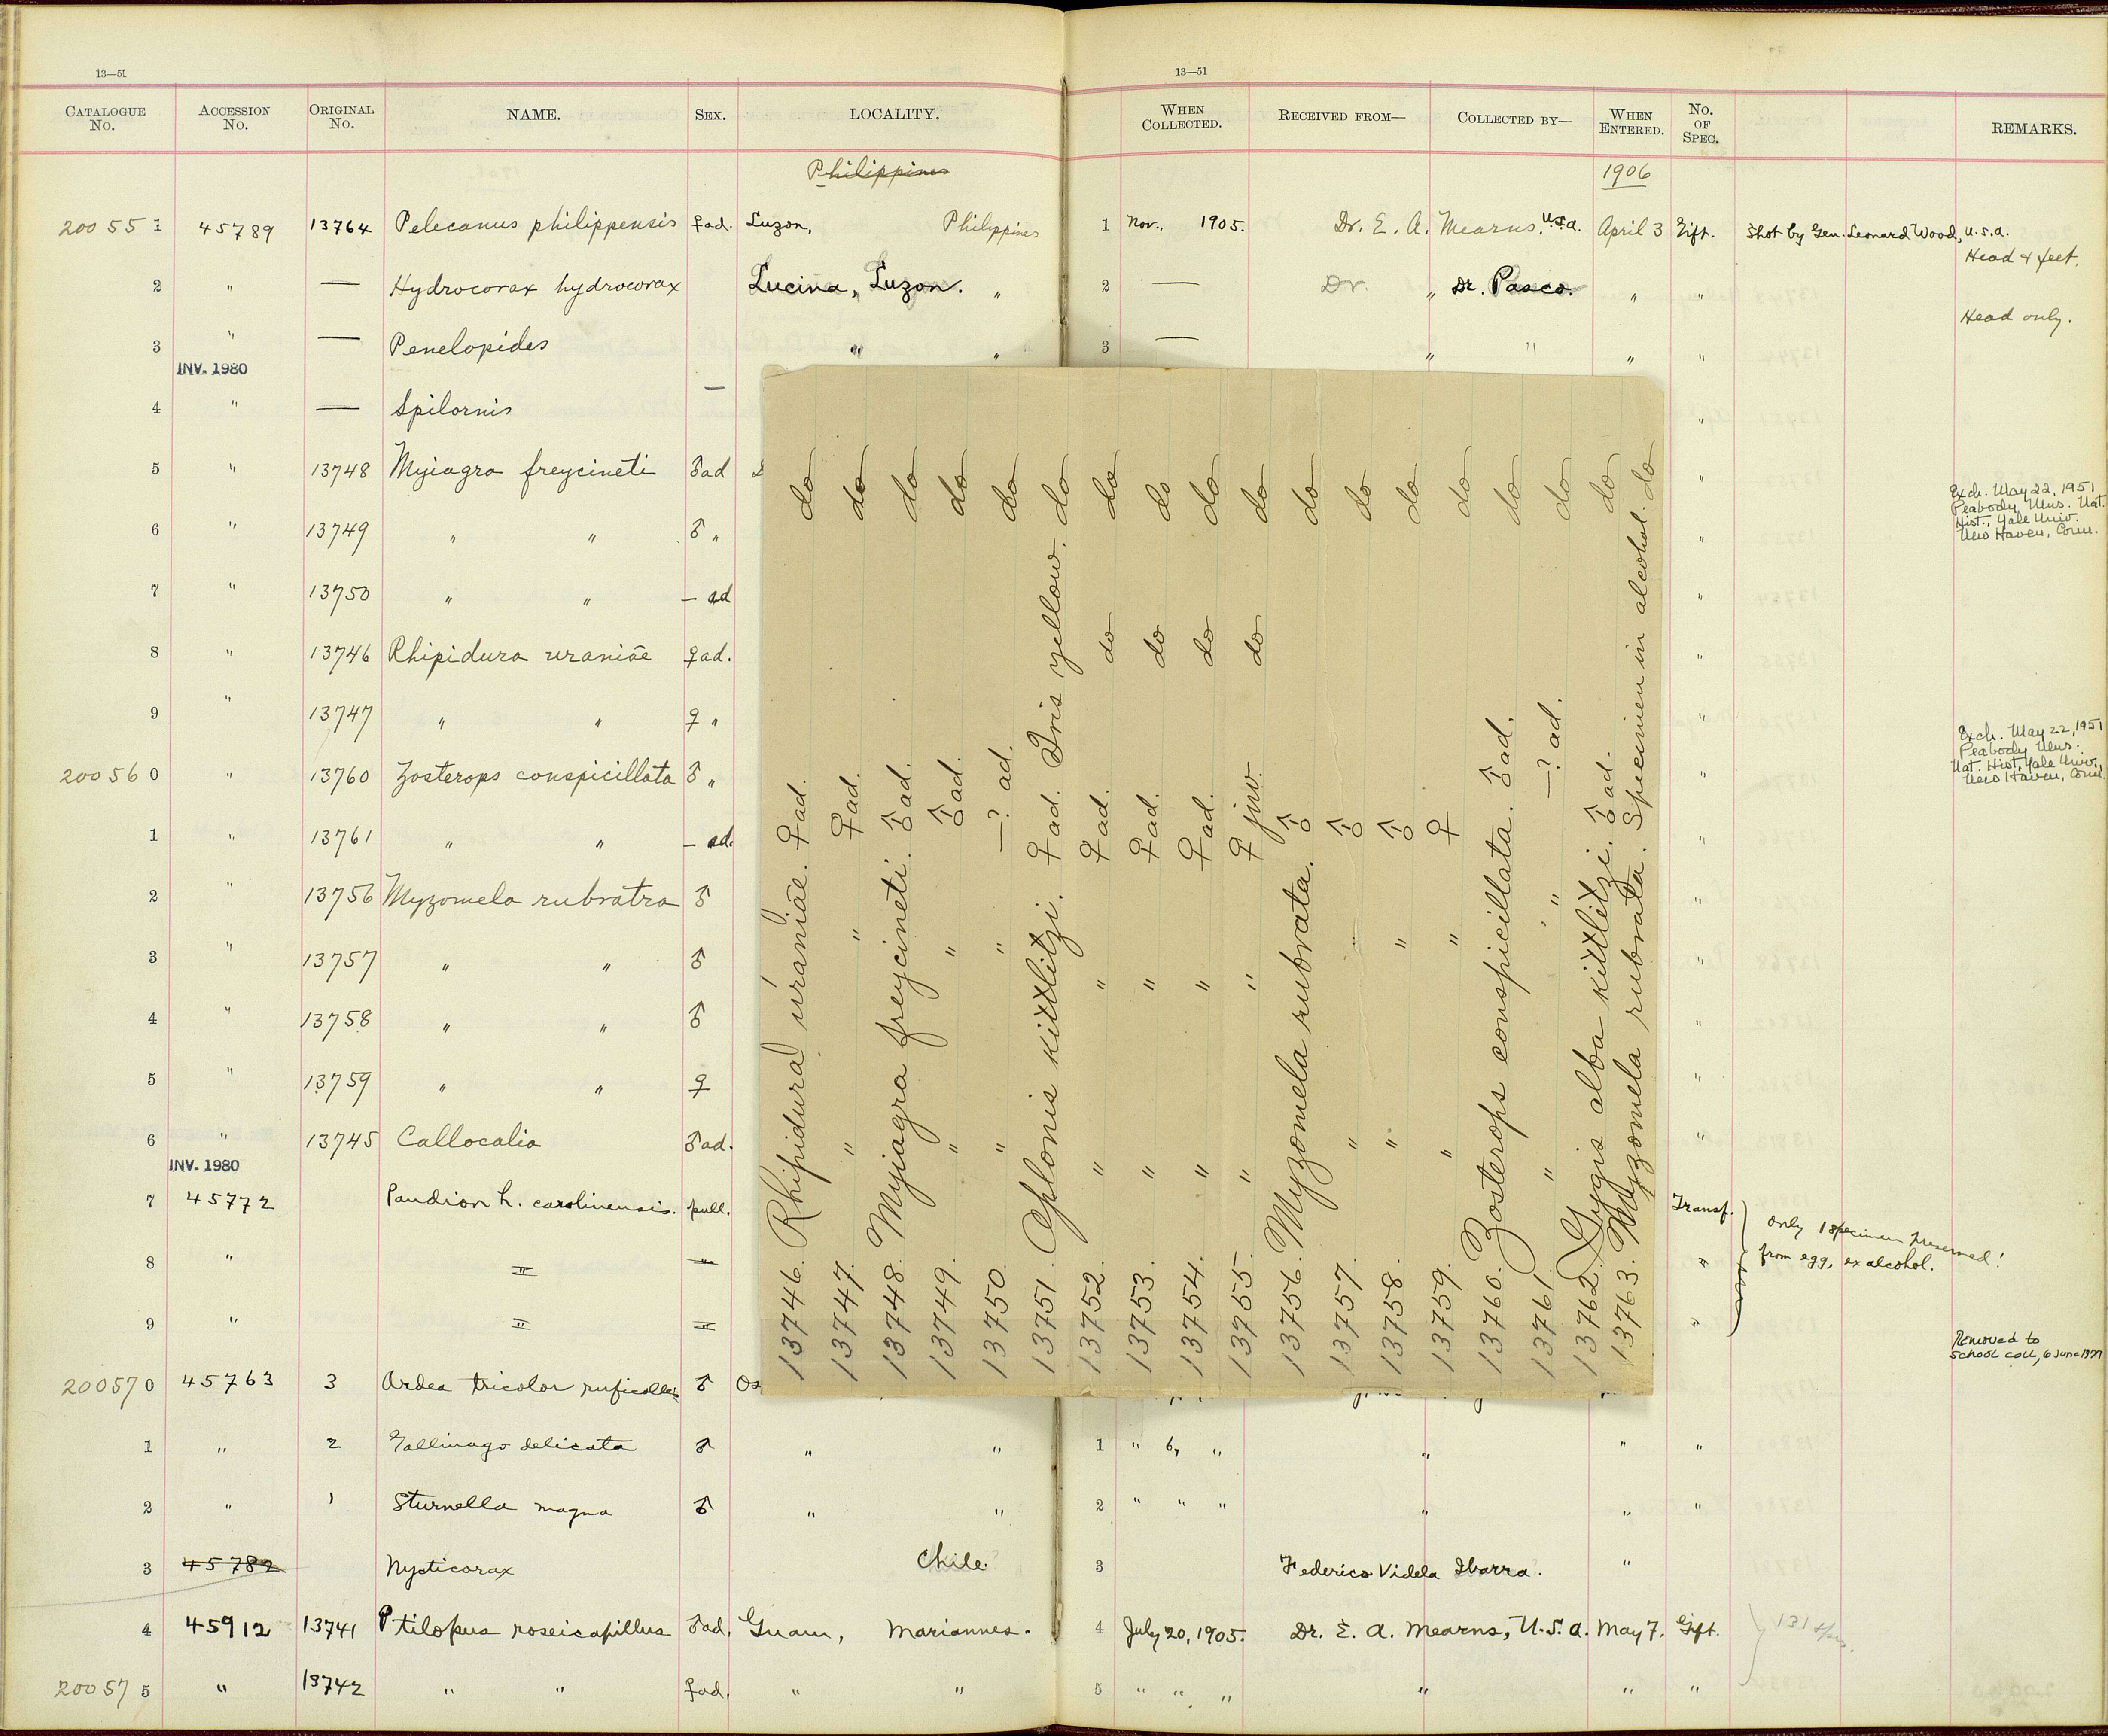 13—51
13—51
CATALOGUE No. ACCESSION No. ORIGINAL No. NAME. SEX. LOCALITY. WHEN COLLECTED. RECEIVED FROM— COLLECTED BY— WHEN ENTERED. No. OF SPEC. REMARKS.
Philippines 1906
20055 1 45789 13764 Pelecanus philippensis ♀ad. Luzon, Philippines 1 Nov., 1905. Dr. E. A. Mearns, U.S.A. April 3 Gift. Shot by Gen. Leonard Wood, U.S.A.
Head & feet.
2 " — Hydrocorax hydrocorax Lucina, Luzon. " 2 — Dr. " Dr. Pasco. " "
Head only.
3 " — Penelopides " " 3 — " " " "
INV. 1980
4 " — Spilornis — "
5 " 13748 Myiagra freycineti ♂ad "
Exch. May 22, 1951
Peabody Mus. Nat.
Hist., Yale Univ.
New Haven, Conn.
6 " 13749 " " ♂ " "
7 " 13750 " " — ad "
8 " 13746 Rhipidura uraniae ♀ad. "
9 " 13747 " " ♀ " "
Exch. May 22, 1951
Peabody Mus.
Nat. Hist, Yale Univ.,
New Haven, Conn.
20056 0 " 13760 Zosterops conspicillata ♂ " "
1 " 13761 " " — ad. "
2 " 13756 Myzomela rubratra ♂ "
3 " 13757 " " ♂ "
4 " 13758 " " ♂ "
5 " 13759 " " ♀ "
6 " 13745 Callocalia ♂ad. "
INV. 1980
7 45772 Pandion h. carolinensis. pull. Transf.
only 1 specimen preserved!
from egg, ex alcohol.
8 " " " "
9 " " " "
Removed to
School coll, 6 June 1977
20057 0 45763 3 Ardea tricolor ruficollis ♂
1 " 2 Gallinago delicata ♂ " " 1 " 6, " " " "
2 " 1 Sturnella magna ♂ " " 2 " " " " " "
3 45782 Nycticorax Chile. 3 Federico Videla Ibarra. "
4 45912 13741 Ptilopus roseicapillus ♂ad. Guam, Mariannes. 4 July 20, 1905. Dr. E. A. Mearns, U.S.A. May 7. Gift. 131
20057 5 " 13742 " " ♀ad. " " 5 " " " " " "
13746. Rhipidura uraniae. ♀ad. do
13747. " " ♀ad. do
13748. Myiagra freycineti. ♂ad. do
13749. " " ♂ad. do
13750. " " —? ad. do
13751. Aplonis kittlitzi. ♀ad. Iris yellow. do
13752. " " ♀ad. do do
13753. " " ♀ad. do do
13754. " " ♀ad. do do
13755. " " ♀ juv. do do
13756. Myzomela rubrata. ♂ do
13757. " " ♂ do
13758. " " ♂ do
13759. " " ♀ do
13760. Zosterops conspicillata. ♂ad. do
13761. " " —? ad. do
13762. Gygis alba kittlitzi. ♂ad. do
13763. Myzomela rubrata. Specimen in alcohol. do